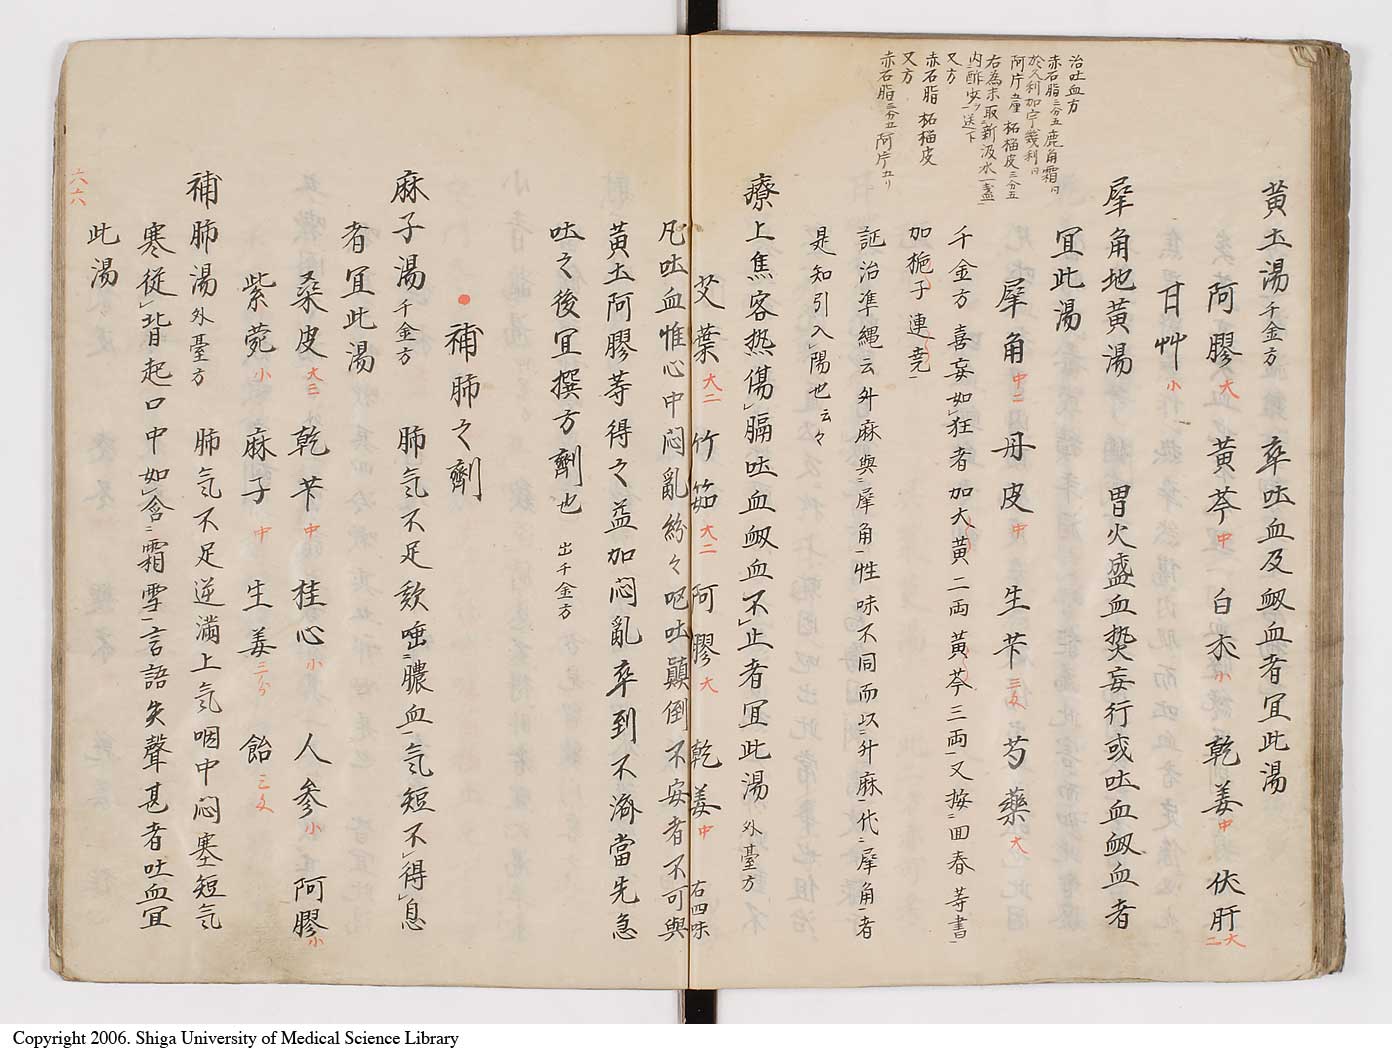 治吐血方
赤石脂三分五 鹿角霜日
於久利加宁幾利日
阿片五厘 柘榴皮三分五
右為末取新汲水一盞
内酢少シ送下
又方
赤石脂 柘榴皮
又方
赤石脂三分五 阿片五リ
黄土湯千金方 卒吐血及衂血者宜此湯
阿膠大 黄芩中 白朮小 乾姜中 伏肝大二
甘艸小
犀角地黄湯 胃火盛血熱妄行或吐血衂血者
宜此湯
犀角中二 丹皮中 生芐三戔 芍薬大
千金方喜妄如狂者加大黄二両黄芩三両又按回春等書
加梔子連堯
証治凖縄云升麻與犀角性味不同而以升麻代犀角者
是知引入陽也云々
療上焦客热傷膈吐血衂血不止者宜此湯 外臺方
艾葉大二 竹筎大二 阿膠大 乾姜中 右四味
凡吐血惟心中闷亂紛々呕吐顛倒不安者不可與
黄土阿膠等得之益加闷亂卒到不濟當先急
吐之後宜撰方劑也 出千金方
補肺之劑
麻子湯千金方 肺気不足欬唾膿血気短不得息
者宜此湯
桑皮大三 乾芐中 桂心小 人参小 阿膠小
紫菀小 麻子中 生姜三分 飴三戔
補肺湯外臺方 肺気不足逆滿上気咽中闷塞短気
寒従背起口中如含霜雪言語失聲甚者吐血宜
此湯
六六